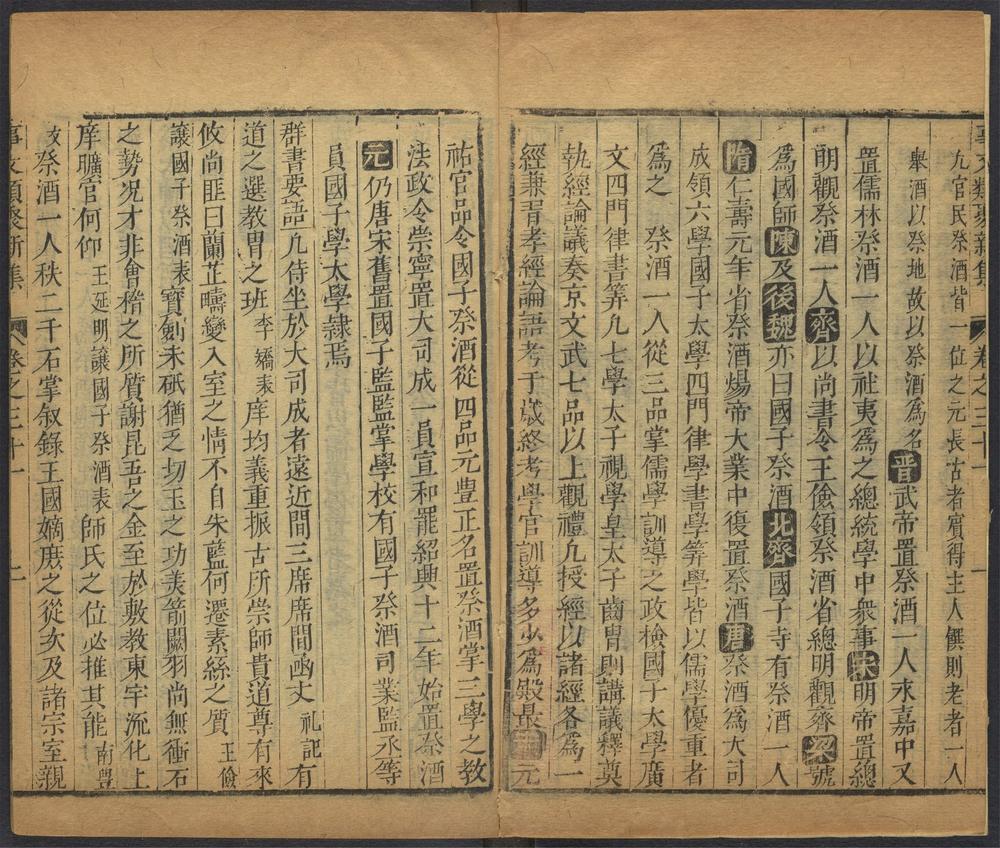 事文類聚新集 卷之三十一
九官民祭酒皆一位之元長古者賓得主人饌則老者一人
舉酒以祭地故以祭酒爲名晉武帝置祭酒一人宋嘉中又
置儒林祭酒一人以社夷爲之總統學中衆事宋明帝置總
明觀祭酒一人齊以尚書令王儉領祭酒省總明觀齊梁號
爲國師陳及後魏亦曰國子祭酒北齊國子寺有祭酒一人
隋仁壽元年省祭酒煬帝大業中復置祭酒唐祭酒爲大司
成領六學國子太學四門律學書學筭學皆以儒學優重者
爲之 祭酒一人從三品掌儒學訓導之政檢國子太學廣
文四門律書筭凡七學太子視學皇太子齒胄則講議釋奠
執經論議奏京文武七品以上觀禮凡授經以諸經各爲一
經兼習孝經論語考于歲終考學官訓導多少爲殿最 元
祐官品令國子祭酒從四品元豊正名置祭酒掌三學之教
法政令崇寧置大司成一員宣和罷紹興十二年始置祭酒
元仍唐宋舊置國子監監掌學校有國子祭酒司業監丞等
員國子學太學隸焉
群書要語凡侍坐於大司成者遠近間三席席間函丈礼記有
道之選教胄之班李嶠表庠均義重振古所崇師貴道尊有來
攸尚匪曰蘭芷疇變入室之情不自朱藍何遷素絲之質王儉
讓國子祭酒表寳劍未砥猶乏切玉之功美箭闕羽尚無衝石
之勢况才非會稽之所質謝昆吾之金至於敷教東宇流化上
庠曠官何仰王延明讓國子祭酒表師氏之位必推其能南豊
文祭酒一人秩二千石掌叙錄王國嫡庶之從次及諸宗室親
事文類聚新集 卷之三十一